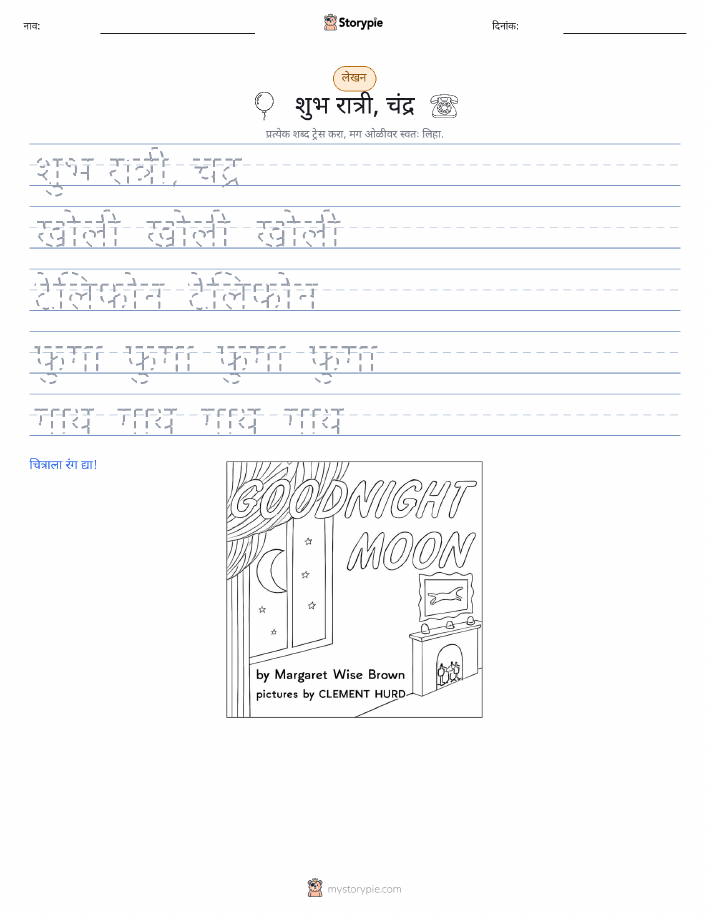 नाव:
Storypie
दिनांक:
लेखन
शुभ रात्री, चंद्र
प्रत्येक शब्द ट्रेस करा, मग ओळीवर स्वतः लिहा.
शुभ रात्री, चंद्र
खोली खोली खोली
टेलिफोन टेलिफोन
फुगा फुगा फुगा फुगा
गाय गाय गाय गाय
चित्राला रंग द्या!
GOODNIGHT
MOON
by Margaret Wise Brown
pictures by CLEMENT HURD
mystorypie.com